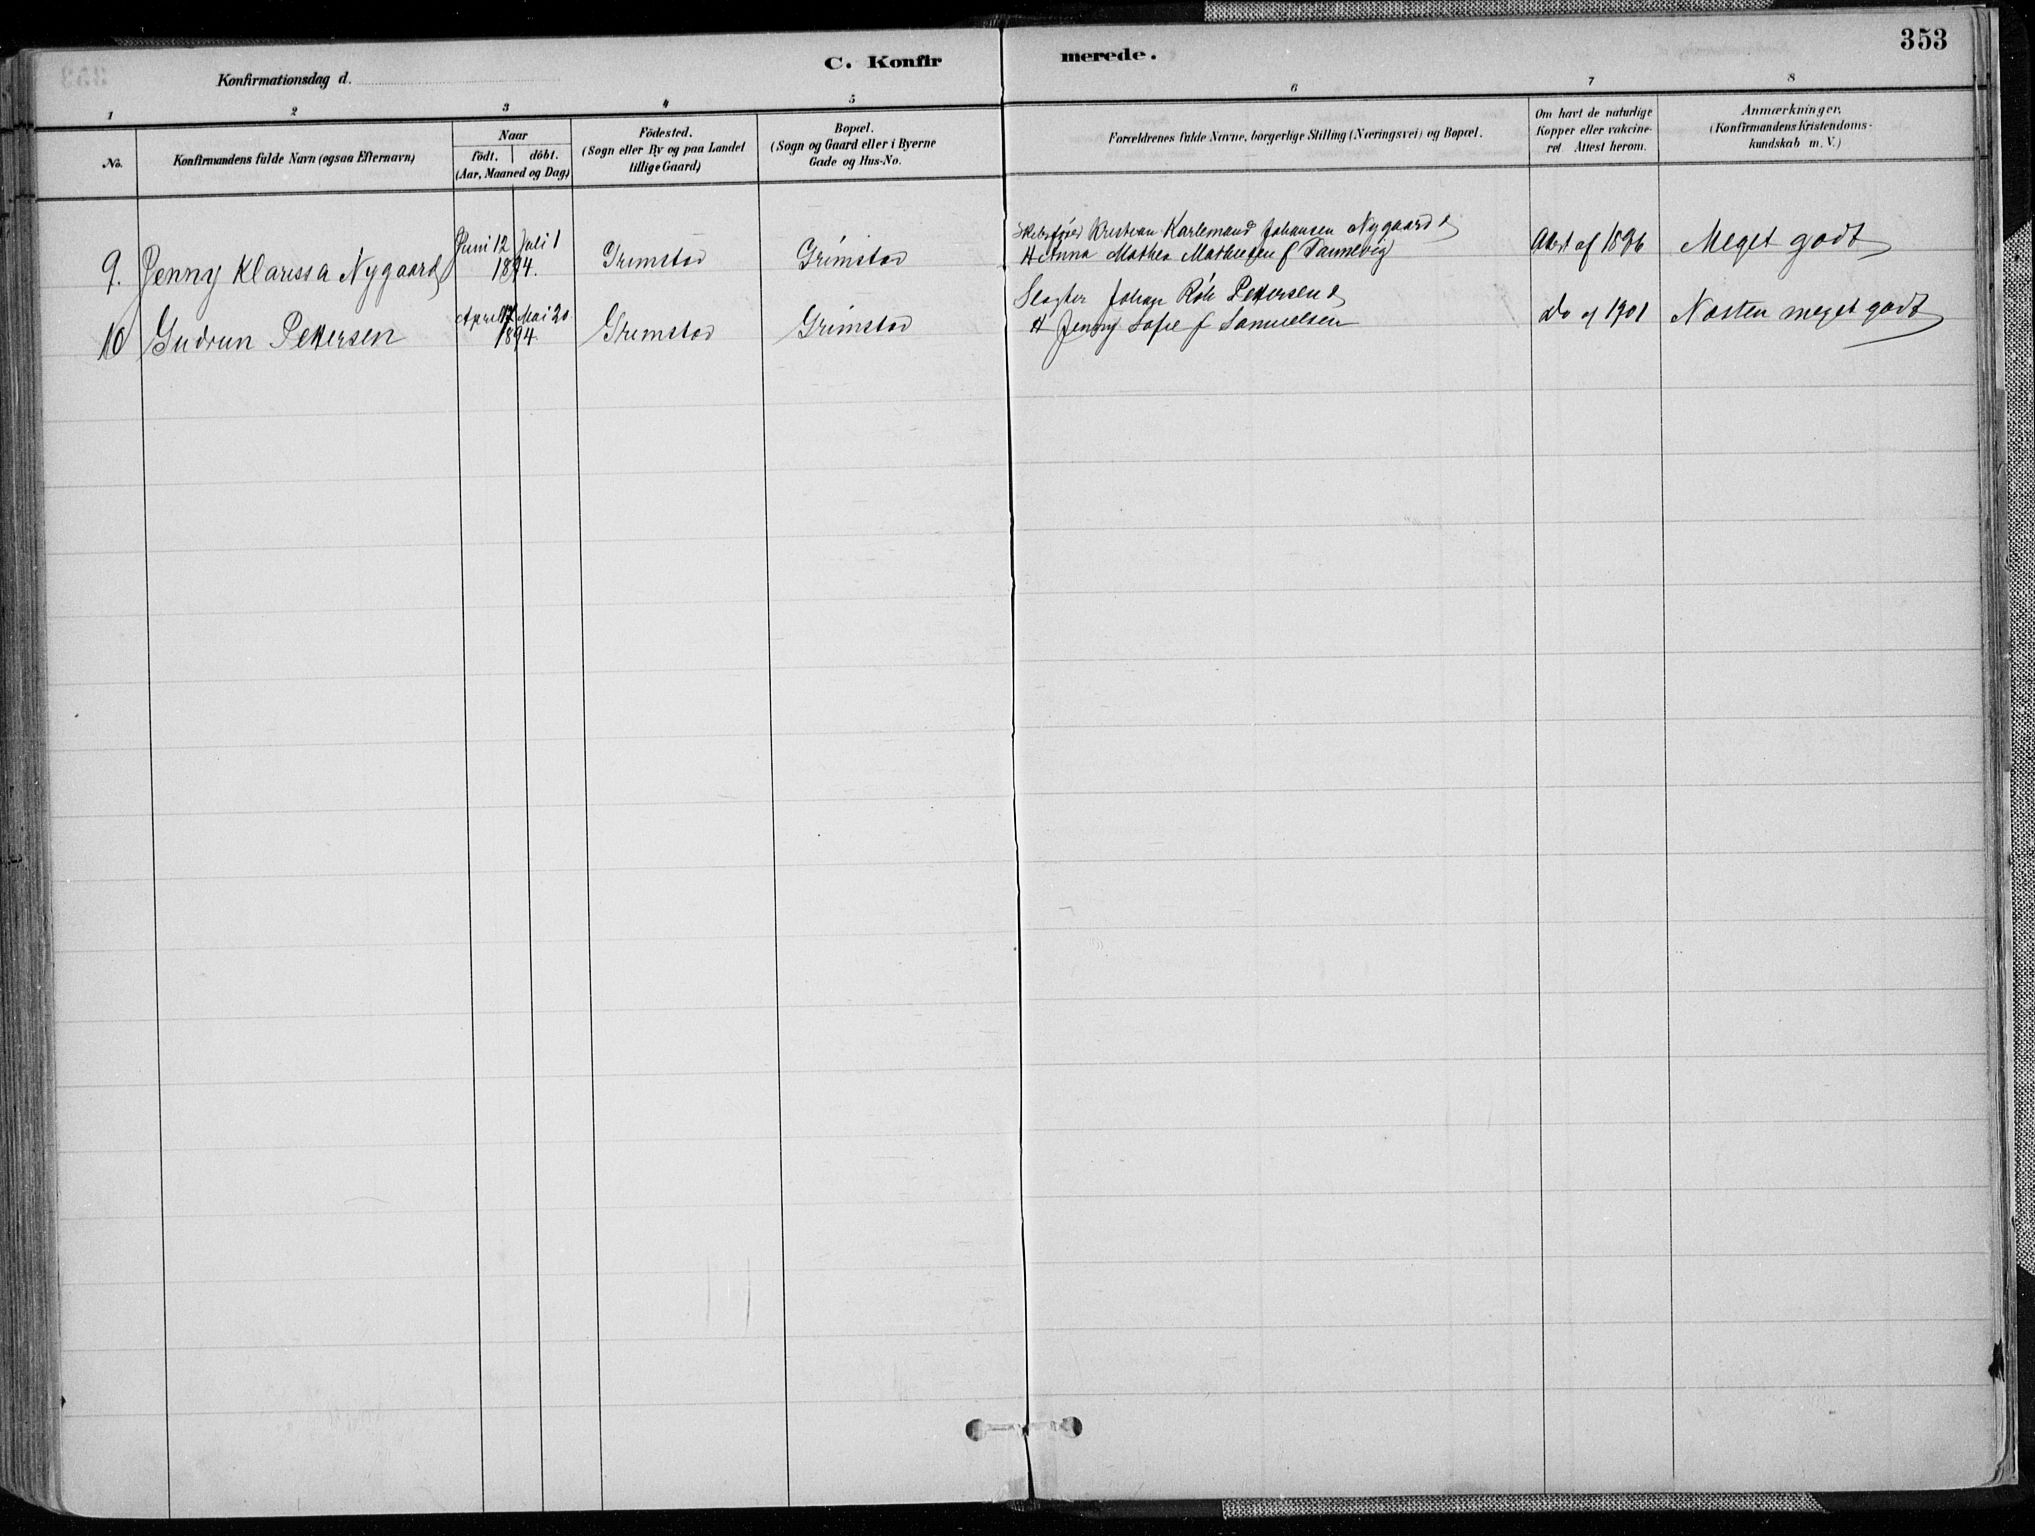 353
C. Konfirmerede.
Konfirmationsdag d.
1 2 3 4 5 6 7 8
No.
Konfirmandens fulde Navn (ogsaa Efternavn)
Naar
födt. döbt.
(Aar, Maaned og Dag)
Födested.
(Sogn eller By og paa Landet
tillige Gaard)
Bopæl.
(Sogn og Gaard eller i Byerne
Gade og Hus-No.
Forældrenes fulde Navne, borgerlige Stilling (Næringsvei) og Bopæl.
Om havt de naturlige
Kopper eller vakcine-
ret. Attest herom.
Anmærkninger.
(Konfirmandens Kristendoms-
kundskab m. V.)
9. Jenny Klarissa Nygaard
Juni 12 Juli 1
1894.
Grimstad
Grimstad
Skibsfører Kristian Karlemand Johansen Nygaard &
H Anna Mathea Mathiesen f Dannevig
Attest af 1896
Meget godt
10 Gudrun Pettersen
April 17 Mai 20
1894.
Grimstad
Grimstad
Slagter Johan Pettersen &
H Jenny Sofie f Samuelsen
Do af 1901
Næsten meget godt